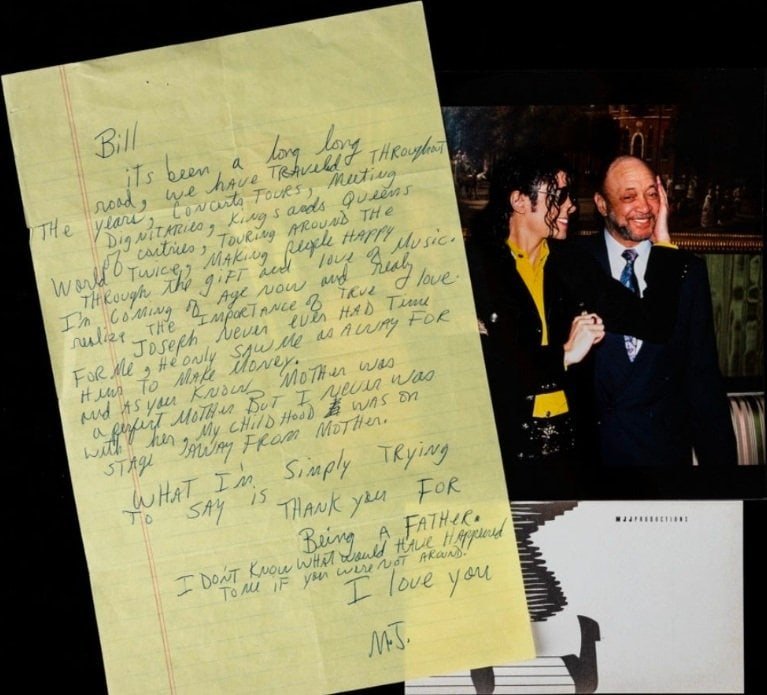 Bill
its been a long long
road, we HAVE TRAVELED THROUGHOUT
THE years, Concerts TOURS, Meeting
DIGNITARIES, Kings ands Queens
of contries, TOURING AROUND THE
World TWICE, MAKING people HAPPY
THROUGH THE gIFT and love of Music.
I'm COMING of AGE NOW and realy
realize THE IMPORTANCE of TRUE love.
Joseph Never ever HAD Time
FOR Me, He only SAW Me as AWAY FOR
Him To MAKE Money.
and AS you KNOW, MOTHER was
a perfect MOTHER BUT I Never was
WITH her, My CHILDHOOD WAS on
STAGE AWAY FROM MOTHER.
WHAT I'm Simply TRYING
TO SAY is THANK you FOR
Being A FATHER.
I DON'T KNOW WHAT would HAVE HAPPENED
TO ME IF you WERE NOT AROUND.
I love you
M.J.
MJJ PRODUCTIONS